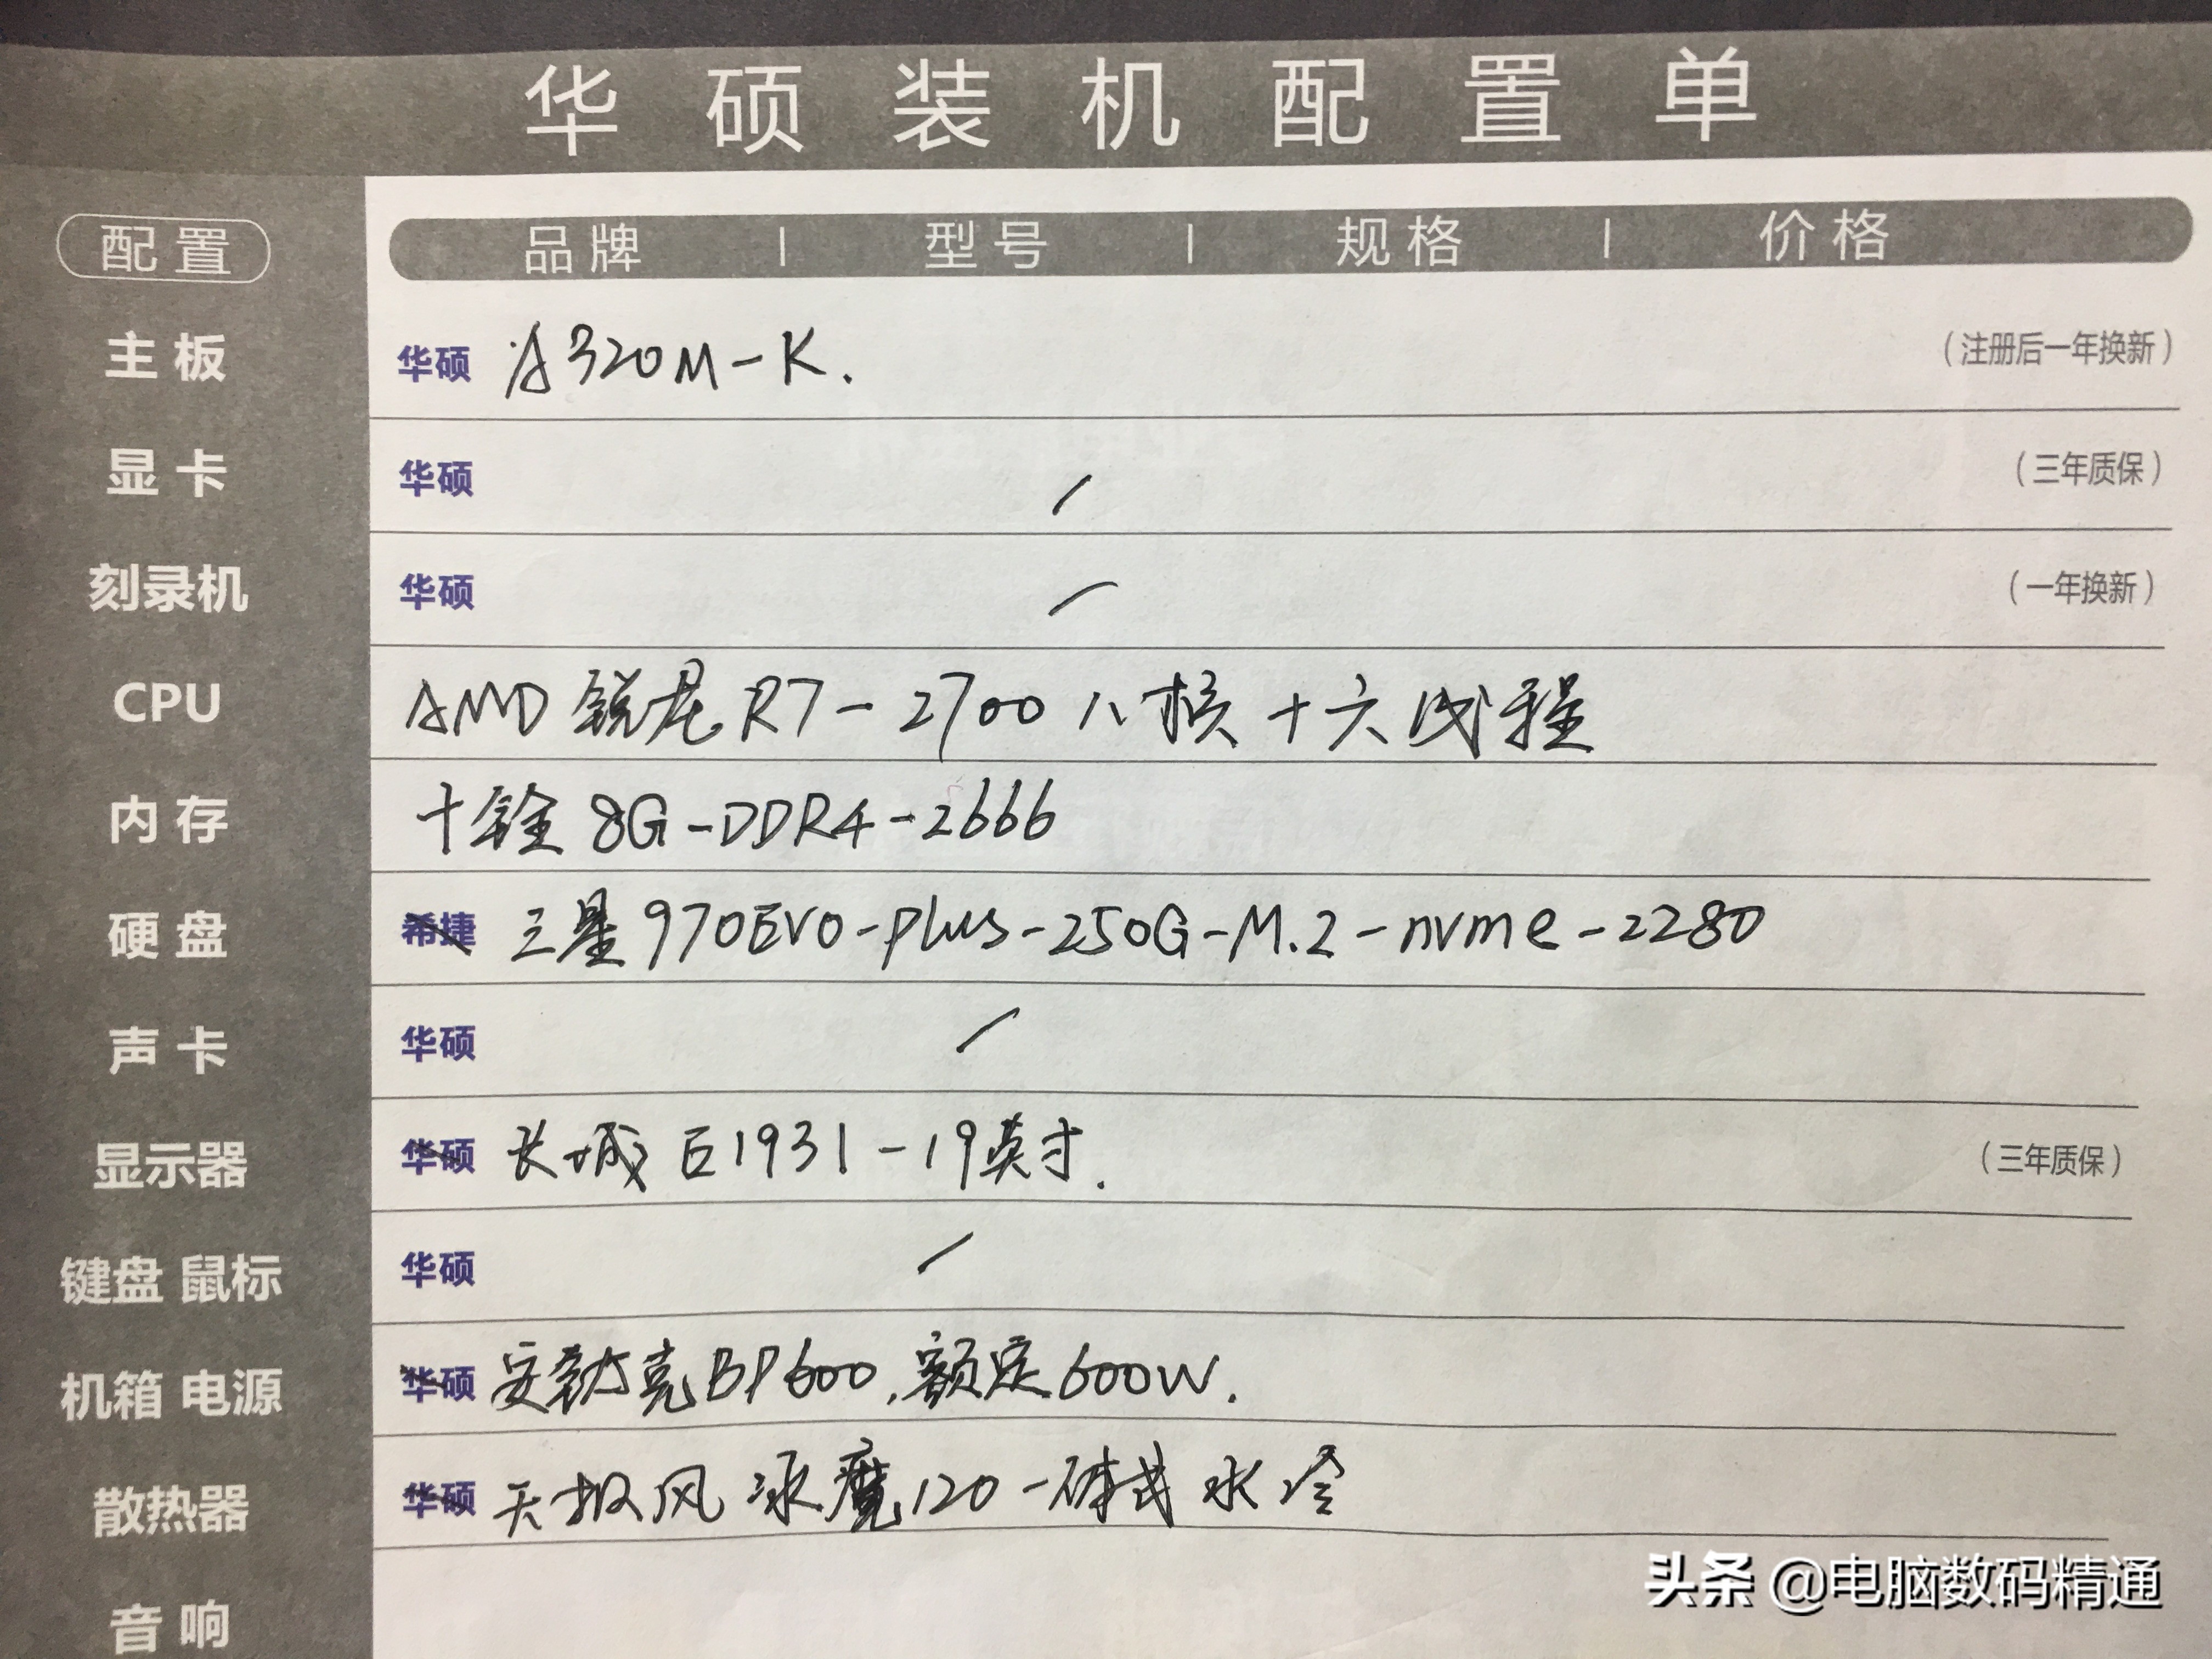 华硕装机配置单
配置 品牌 | 型号 | 规格 | 价格
主板 华硕 A320M-K. (注册后一年换新)
显卡 华硕 / (三年质保)
刻录机 华硕 / (一年换新)
CPU AMD 锐龙R7-2700 八核十六线程
内存 十铨 8G-DDR4-2666
硬盘 希捷 三星970EVO-plus-250G-M.2-nvme-2280
声卡 华硕 /
显示器 华硕 长城 巨1931-19英寸. (三年质保)
键盘 鼠标 华硕 /
机箱 电源 华硕 安钛克BP600,额定600W.
散热器 华硕 天极风 冰魔120-体式水冷
音响
头条 @电脑数码精通